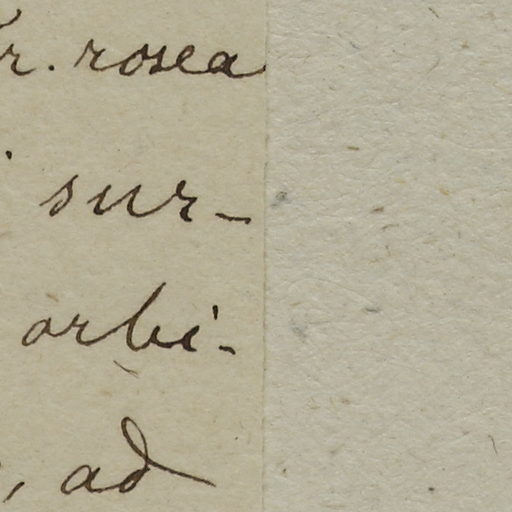 r. rosea
sur-
orbi-
, ad